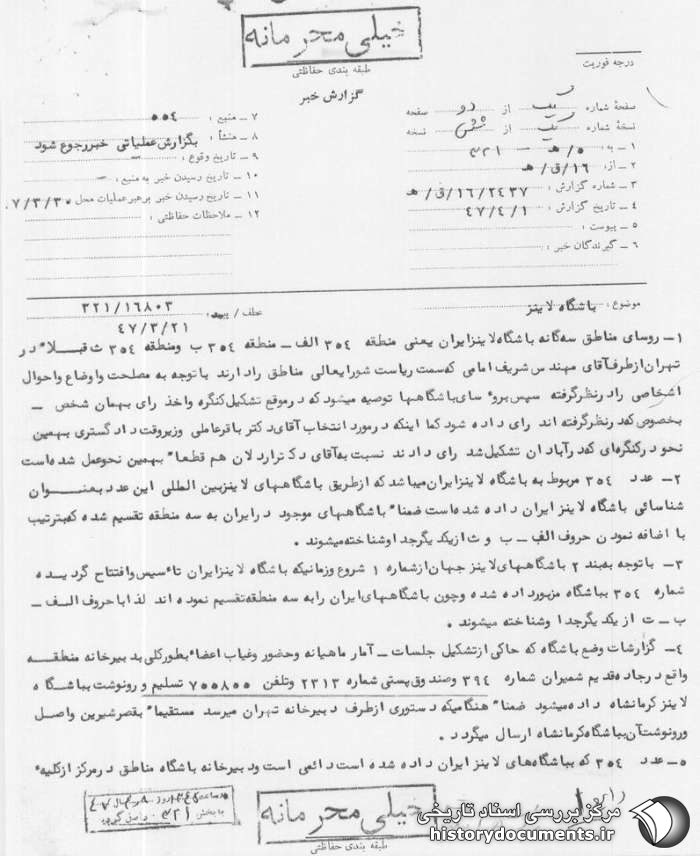 خیلی محرمانه
طبقه بندی حفاظتی
درجه فوریت
گزارش خبر
صفحه شماره یک از دو صفحه
نسخه شماره یک از شش نسخه
۱ – به : ۵/هـ – ۳۲۱
۲ – از: ۱۶/ق/هـ
۳ – شماره گزارش : ۱۶/۲۴۳۷/ق/هـ
۴ – تاریخ گزارش : ۴۷/۴/۱
۵ – پیوست :
۶ – گیرندگان خبر :
۷ – منبع : ۵۵۴
۸ – منشأ : بگزارش عملیاتی خبر رجوع شود
۹ – تاریخ وقوع : –
۱۰ – تاریخ رسیدن خبر به منبع : –
۱۱ – تاریخ رسیدن خبر برهبر عملیات محل ۷/۳/۳۰
۱۲ – ملاحظات حفاظتی :
موضوع : باشگاه لاینز
عطف / پیرو : ۳۲۱/۱۶۸۰۳
۴۷/۳/۲۱
۱– روسای مناطق سه گانه باشگاه لاینز ایران یعنی منطقه ۳۵۴ الف – منطقه ۳۵۴ ب ومنطقه ۳۵۴ ث قبلا" در
تهران ازطرف آقای مهندس شریف امامی که سمت ریاست شورایعالی مناطق را دارند باتوجه به مصلحت واوضاع واحوال
اشخاصی را درنظرگرفته سپس بروءسای باشگاهها توصیه میشود که درموقع تشکیل کنگره واخذ رای بهمان شخص –
بخصوص که درنظرگرفته اند رای داده شود کما اینکه درمورد انتخاب آقای دکتر باقرعاملی وزیروقت دادگستری بهمین
نحو درکنگره ای که درآبادان تشکیل شد رای دادند نسبت به آقای دکتراردلان هم قطعا" بهمین نحوعمل شده است
۲– عدد ۳۵۴ مربوط به باشگاه لاینز ایران میباشد که ازطریق باشگاههای لاینزبین المللی این عدد بعنوان
شناسائی باشگاه لاینز ایران داده شده است ضمنا" باشگاههای موجود درایران به سه منطقه تقسیم شده که بترتیب
با اضافه نمودن حروف الف – ب و ث ازیکدیگرجدا وشناخته میشوند .
۳– باتوجه به بند ۲ باشگاههای لاینز جهان ازشماره ۱ شروع وزمانیکه باشگاه لاینزایران تاءسیس وافتتاح گردیده
شماره ۳۵۴ بباشگاه مزبورداده شده وچون باشگاههای ایران را به سه منطقه تقسیم نموده اند لذا باحروف الف –
ب – ت از یکدیگرجدا وشناخته میشوند .
۴– گزارشات وضع باشگاه که حاکی ازتشکیل جلسات – آمار ماهیانه وحضور وغیاب اعضاء بطورکلی به دبیرخانه منطقه
واقع درجاده قدیم شمیران شماره ۳۹۴ وصندوق پستی شماره ۲۳۱۳ وتلفن ۷۵۵۸۵۵ تسلیم و رونوشت بباشگاه
لاینز کرمانشاه داده میشود ضمنا" هنگامیکه دستوری ازطرف دبیرخانه تهران میرسد مستقیما" بقصرشیرین واصل
ورونوشت آن بباشگاه کرمانشاه ارسال میگردد.
۵– عدد ۳۵۴ که بباشگاههای لاینز ایران داده شده است دائمی است ودبیرخانه باشگاه مناطق درمرکز ازکلیه ء
خیلی محرمانه
طبقه بندی حفاظتی
مرکز بررسی اسناد تاریخی
historydocuments.ir